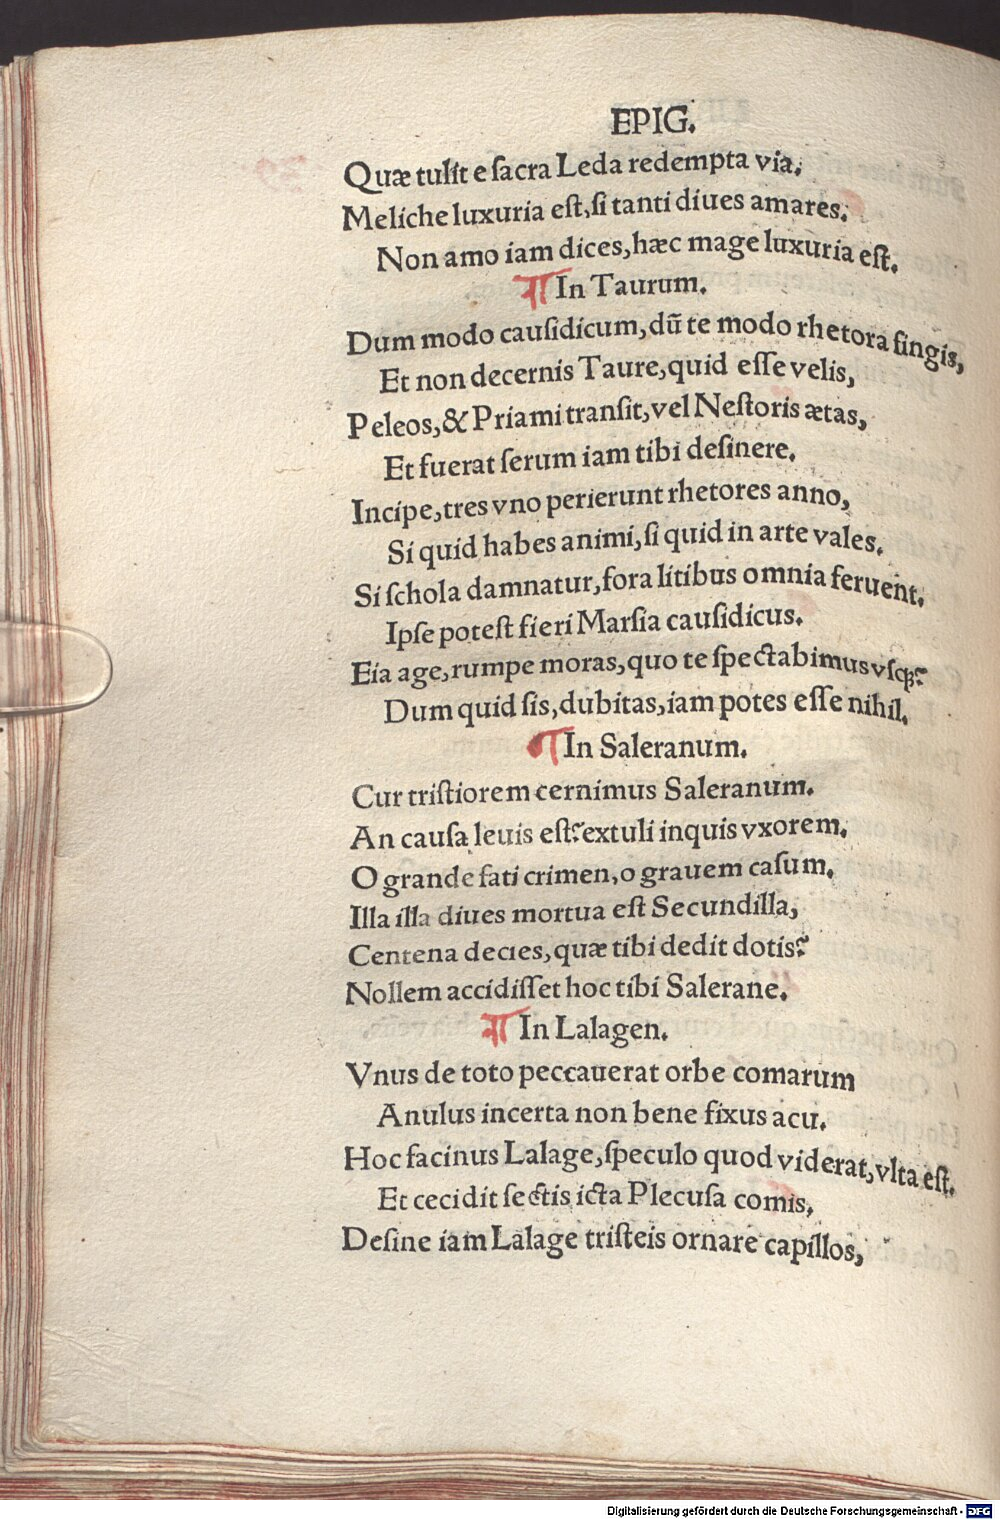 EPIG.
Quæ tulit e ſacra Leda redempta via.
Meliche luxuria eſt, ſi tanti diues amares.
Non amo iam dices, hæc mage luxuria eſt.
¶ In Taurum.
Dum modo cauſidicum, dū te modo rhetora fingis,
Et non decernis Taure, quid eſſe velis,
Peleos, & Priami tranſit, vel Neſtoris ætas,
Et fuerat ſerum iam tibi deſinere.
Incipe, tres vno perierunt rhetores anno,
Si quid habes animi, ſi quid in arte vales.
Si ſchola damnatur, fora litibus omnia feruent.
Ipſe poteſt fieri Marſia cauſidicus.
Eia age, rumpe moras, quo te ſpectabimus vſqꝫ?
Dum quid ſis, dubitas, iam potes eſſe nihil.
¶ In Saleranum.
Cur triſtiorem cernimus Saleranum.
An cauſa leuis eſt? extuli inquis vxorem.
O grande fati crimen, o grauem caſum.
Illa illa diues mortua eſt Secundilla,
Centena decies, quæ tibi dedit dotis?
Nollem accidiſſet hoc tibi Salerane.
¶ In Lalagen.
Vnus de toto peccauerat orbe comarum
Anulus incerta non bene fixus acu.
Hoc facinus Lalage, ſpeculo quod viderat, vlta eſt.
Et cecidit ſectis icta Plecuſa comis,
Deſine iam Lalage triſteis ornare capillos,
Digitalisierung gefördert durch die Deutsche Forschungsgemeinschaft - DFG